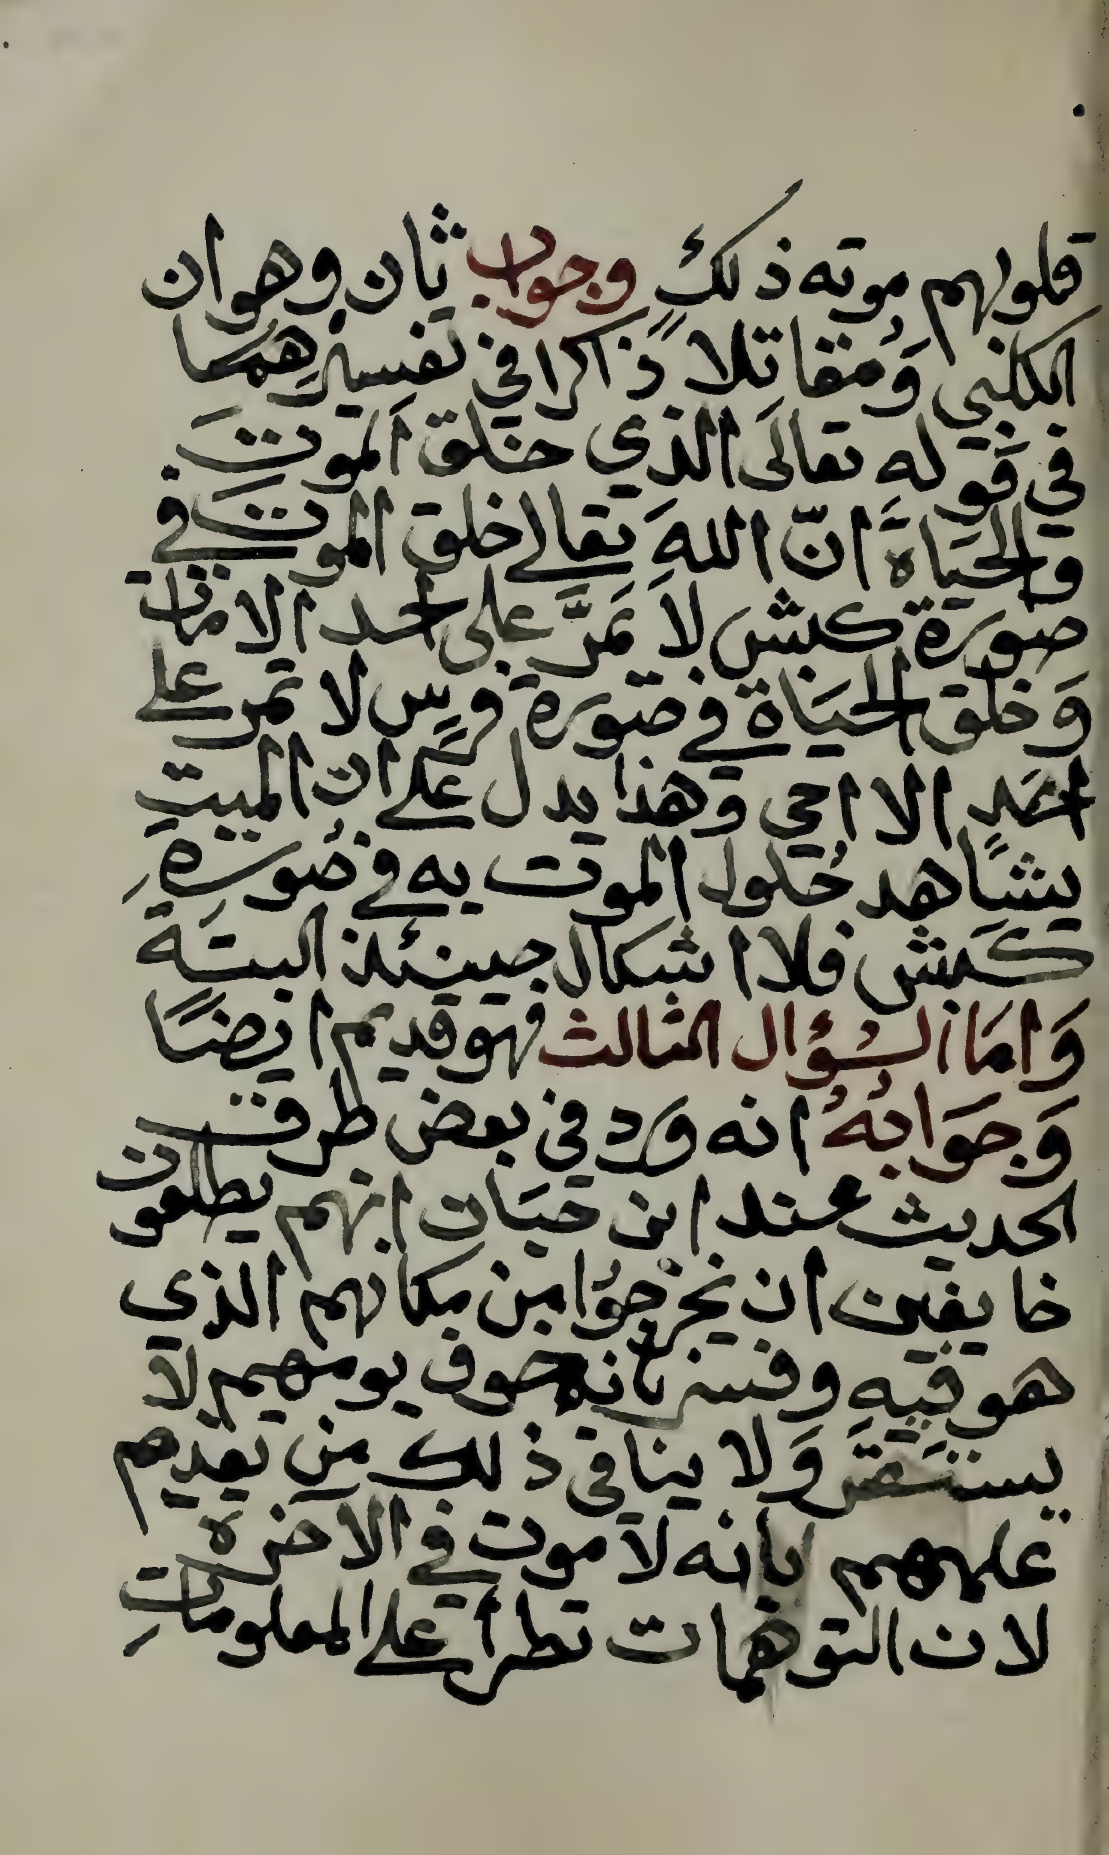 قلوبهم موته ذلك وجواب ثان وهو ان
الكلبي وَمُقاتلا ذاكرا في تفسيرهما
في قوله تعالى الذي خلق الموت
والحَيَاةَ انّ اللهَ تعالى خلق الموت في
صورة كبش لا تمرَّ على احد الا مات
وَخلق الحَيَاة في صُورة فرس لا تمر على
احد الا احي وهذا يدل عَلى ان الميت
يشَاهد حُلول الموت به في صُورة
كبش فلا اشكال حينئذ البتة
وَامَا السُؤال الثالث فهو قديم ايضًا
وَجوَابُهُ انه ورد في بعض طرق
الحديث عند ابن حبَان انهم يطلعون
خايفين ان يخرجُوا من مكانهم الذي
هو فيه وفسر بانه خوف يومهم لا
يستقر وَلا ينافي ذلك من تقدم
علمهم بانه لا موت في الاخرة
لان التوهمات تطرأ على المعلومات